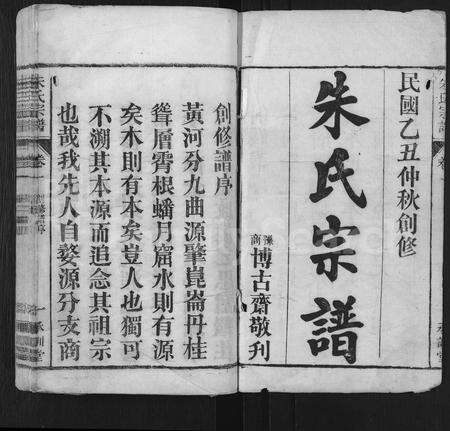 民國乙丑仲秋創修
朱氏宗譜
豫商博古齋敬刊
創修譜序
黃河分九曲源肇崑崙丹桂
聳層霄根蟠月窟水則有源
矣木則有本矣豈人也獨可
不溯其本源而追念其祖宗
也哉我先人自婺源分支商
朱氏宗譜
卷